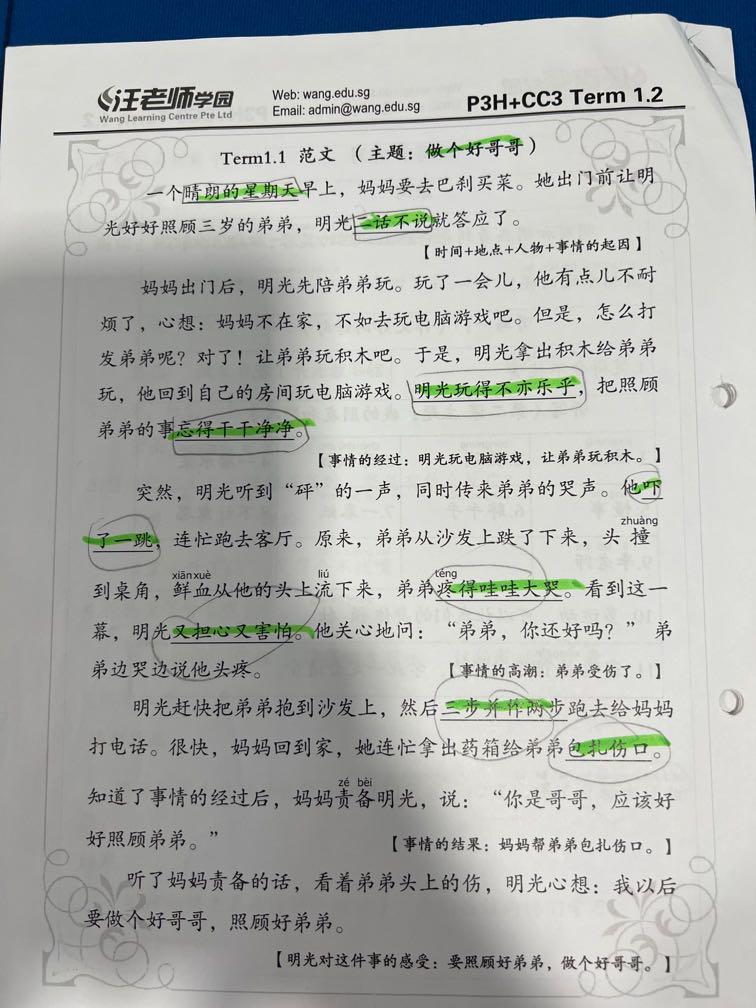 汪老师学园
Wang Learning Centre Pte Ltd
Web: wang.edu.sg
Email: admin@wang.edu.sg
P3H+CC3 Term 1.2
Term1.1 范文 （主题：做个好哥哥）
一个晴朗的星期天早上，妈妈要去巴刹买菜。她出门前让明
光好好照顾三岁的弟弟，明光二话不说就答应了。
【时间+地点+人物+事情的起因】
妈妈出门后，明光先陪弟弟玩。玩了一会儿，他有点儿不耐
烦了，心想：妈妈不在家，不如去玩电脑游戏吧。但是，怎么打
发弟弟呢？对了！让弟弟玩积木吧。于是，明光拿出积木给弟弟
玩，他回到自己的房间玩电脑游戏。明光玩得不亦乐乎，把照顾
弟弟的事忘得干干净净。
【事情的经过：明光玩电脑游戏，让弟弟玩积木。】
突然，明光听到“砰”的一声，同时传来弟弟的哭声。他吓
了一跳，连忙跑去客厅。原来，弟弟从沙发上跌了下来，头撞
zhuàng
到桌角，鲜血从他的头上流下来，弟弟疼得哇哇大哭。看到这一
xiān xuè liú téng
幕，明光又担心又害怕。他关心地问：“弟弟，你还好吗？” 弟
弟边哭边说他头疼。
【事情的高潮：弟弟受伤了。】
明光赶快把弟弟抱到沙发上，然后三步并作两步跑去给妈妈
打电话。很快，妈妈回到家，她连忙拿出药箱给弟弟包扎伤口。
知道了事情的经过后，妈妈责备明光，说：“你是哥哥，应该好
zé bèi
好照顾弟弟。”
【事情的结果：妈妈帮弟弟包扎伤口。】
听了妈妈责备的话，看着弟弟头上的伤，明光心想：我以后
要做个好哥哥，照顾好弟弟。
【明光对这件事的感受：要照顾好弟弟，做个好哥哥。】